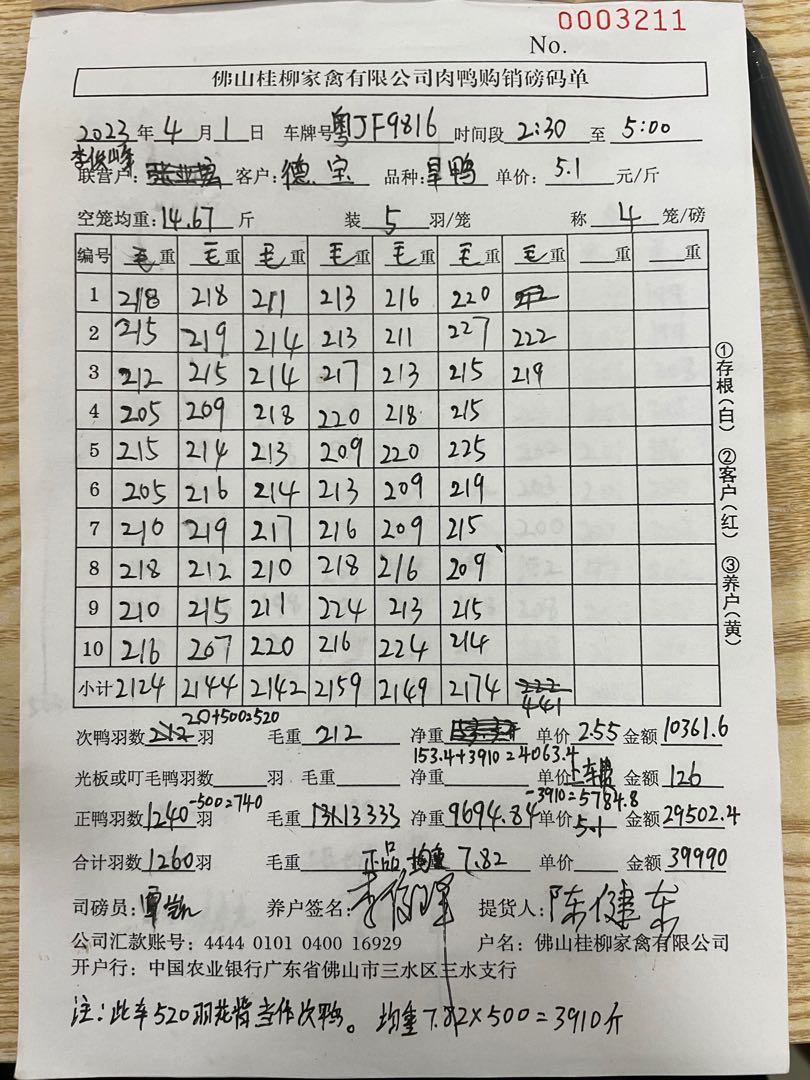 0003211
No.
佛山桂柳家禽有限公司肉鸭购销磅码单
2023年4月1日 车牌号粤JF9816 时间段2:30至5:00
李俊峰
联营户: 客户:德宝 品种:旱鸭 单价:5.1元/斤
空笼均重:14.67斤 装5羽/笼 称4笼/磅
编号 毛重 毛重 毛重 毛重 毛重 毛重 毛重 重 重
1 218 218 211 213 216 220 212
2 215 219 214 213 211 227 222
3 212 215 214 217 213 215 219
4 205 209 218 220 218 215
5 215 214 213 209 220 225
6 205 216 214 213 209 219
7 210 219 217 216 209 215
8 218 212 210 218 216 209
9 210 215 211 224 213 215
10 216 207 220 216 224 214
小计 2124 2144 2142 2159 2149 2174 222
441
①存根(白) ②客户(红) ③养户(黄)
20+500=520
次鸭羽数212羽 毛重212 净重 单价2.55 金额10361.6
153.4+3910=4063.4
光板或叮毛鸭羽数 羽 毛重 净重 单价上车费 金额126
-500=740 -3910=5784.8
正鸭羽数1240羽 毛重13333 净重9694.84 单价5.1 金额29502.4
合计羽数1260羽 毛重 正品均重7.82 单价 金额39990
司磅员:覃凯 养户签名:李俊峰 提货人:陈健东
公司汇款账号:4444 0101 0400 16929 户名:佛山桂柳家禽有限公司
开户行:中国农业银行广东省佛山市三水区三水支行
注:此车520羽花背当作次鸭。 均重7.82×500=3910斤